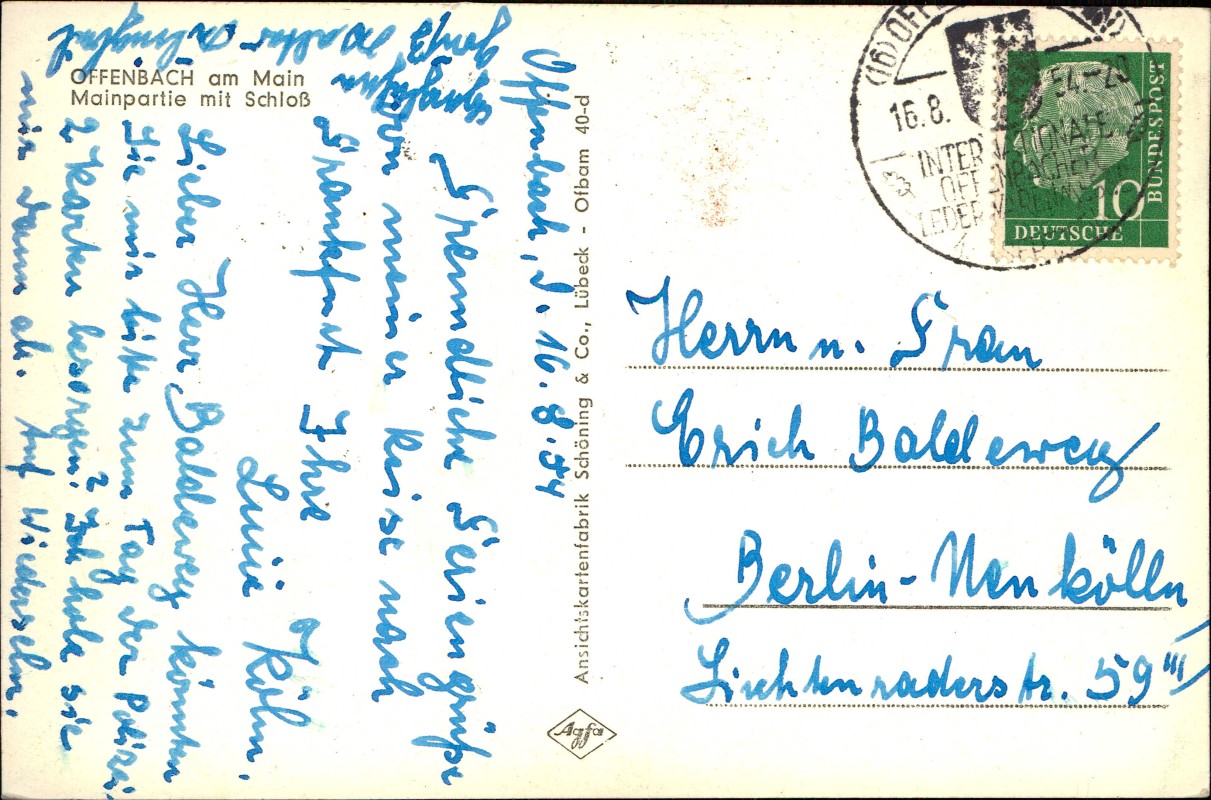 OFFENBACH am Main
Mainpartie mit Schloß
Offenbach, d. 16.8.54
Freundliche Feriengrüße
von meiner Reise nach
Frankfurt Ihre
Luise Köhn.
Lieber Herr Baldeweg könnten
Sie mir bitte zum Tag der Polizei
2 Karten besorgen? Ich hole sie
mir dann ab. Auf Wiedersehn.
Ansichtskartenfabrik Schöning & Co., Lübeck - Ofbam 40-d
Agfa
16.8.
54.-20
INTERNATIONALE
OFFENBACHER
DEUTSCHE
BUNDESPOST
10
Herrn u. Frau
Erich Baldeweg
Berlin-Neukölln
Lichtenraderstr. 59 III